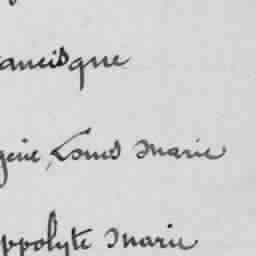 ancisque
gène, Louis Marie
ppolyte Marie